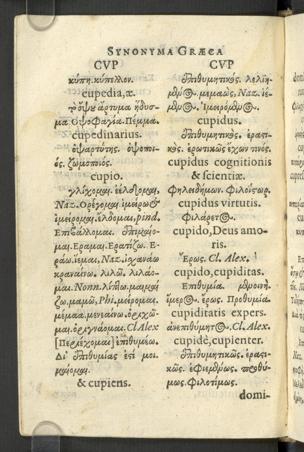 SYNONYMA GRÆCA
CVP
κύπη. κύπελλον.
cupedia, æ.
τὸ ὄψον ἄρτυμα ἥδυσ-
μα ὀψοφαγία. Πέμμα.
cupedinarius.
ὀψαρτύτης. ὀψοποι-
ός. ζωμοποιός.
cupio.
γλίχομαι. ἐέλδομαι,
Naz. Ορέγομαι ἱμείρω &
ἱμείρομαι. ἔλδομαι, pind.
Επιβάλλομαι.
μαι. Εραμαι. Ερατίζω. Ε-
ράω. ἵεμαι, Naz. ἰσχανάω
λιλῶ. λιλάο-
μαι. Nonn.
ζω. μαιμῶ, Phi. μείρομαι.
μέμαα. μενεαίνω. ὀρεχθῶ-
μαι. ὀριγνάομαι. Cl. Alex
[Περιέχομαι] ἐπιθυμέω.
Δι᾽ ἐπιθυμίας ἐστί μοι.

& cupiens.
CVP
ἐπιθυμητικός. λελιη-
μένος. μεμαώς, Naz. ἱέ-
μενος. ἱμειρόμενος.
cupidus.
ἐπιθυμητικός. ἐρασι-
κός. ἐρωτικῶς ἔχων τινός.
cupidus cognitionis
& scientiæ.
Φιληειδήμων. Φιλοΐστωρ.
cupidus virtutis.
Φιλάρετος.
cupido, Deus amo-
ris.
Ἔρως. Cl. Alex.
cupido, cupiditas.
Επιθυμία
ἵμερος. ἔρως. Προθυμία.
cupiditatis expers.
ἀνεπιθύμητος. Cl. Alex.
cupidè, cupienter.
ἐπιθυμητικῶς. ἐρασι-
κῶς. ἐφιεμένως. προθύ-
μως. Φιλοτίμως.
domi-